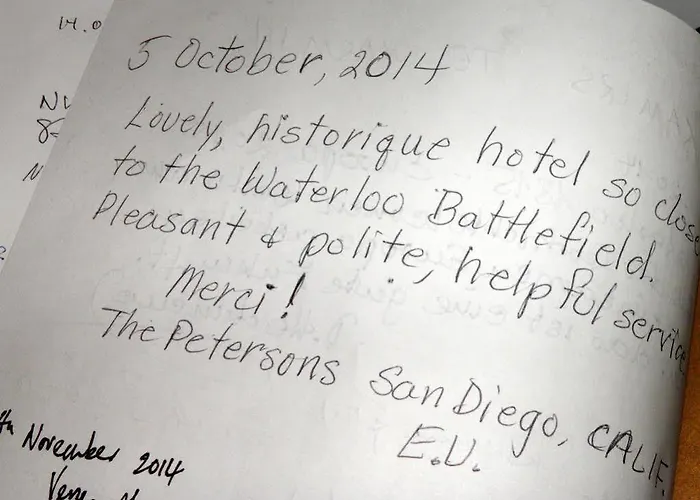 14.0
5 October, 2014
Lovely, historique hotel so close
to the Waterloo Battlefield.
Pleasant & polite, helpful service
Merci!
The Petersons San Diego, CALIF.
E.U.
November 2014